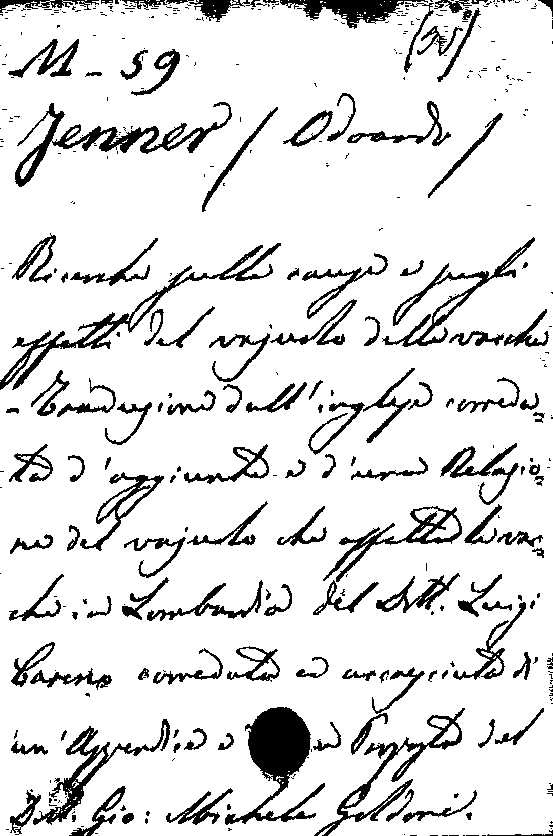 M - 59 (35)
Jenner / Odoardo /
Ricerche sulle cause e sugli
effetti del vajuolo delle vacche
- Traduzione dall'inglese correda=
ta d'aggiunte e d'una Relazio=
ne del vajuolo che affetta le vac=
che in Lombardia del Dott. Luigi
Careno corredata ed accresciuta di
un'Appendice e Prospetto del
Dott. Gio: Michele Goldoni.